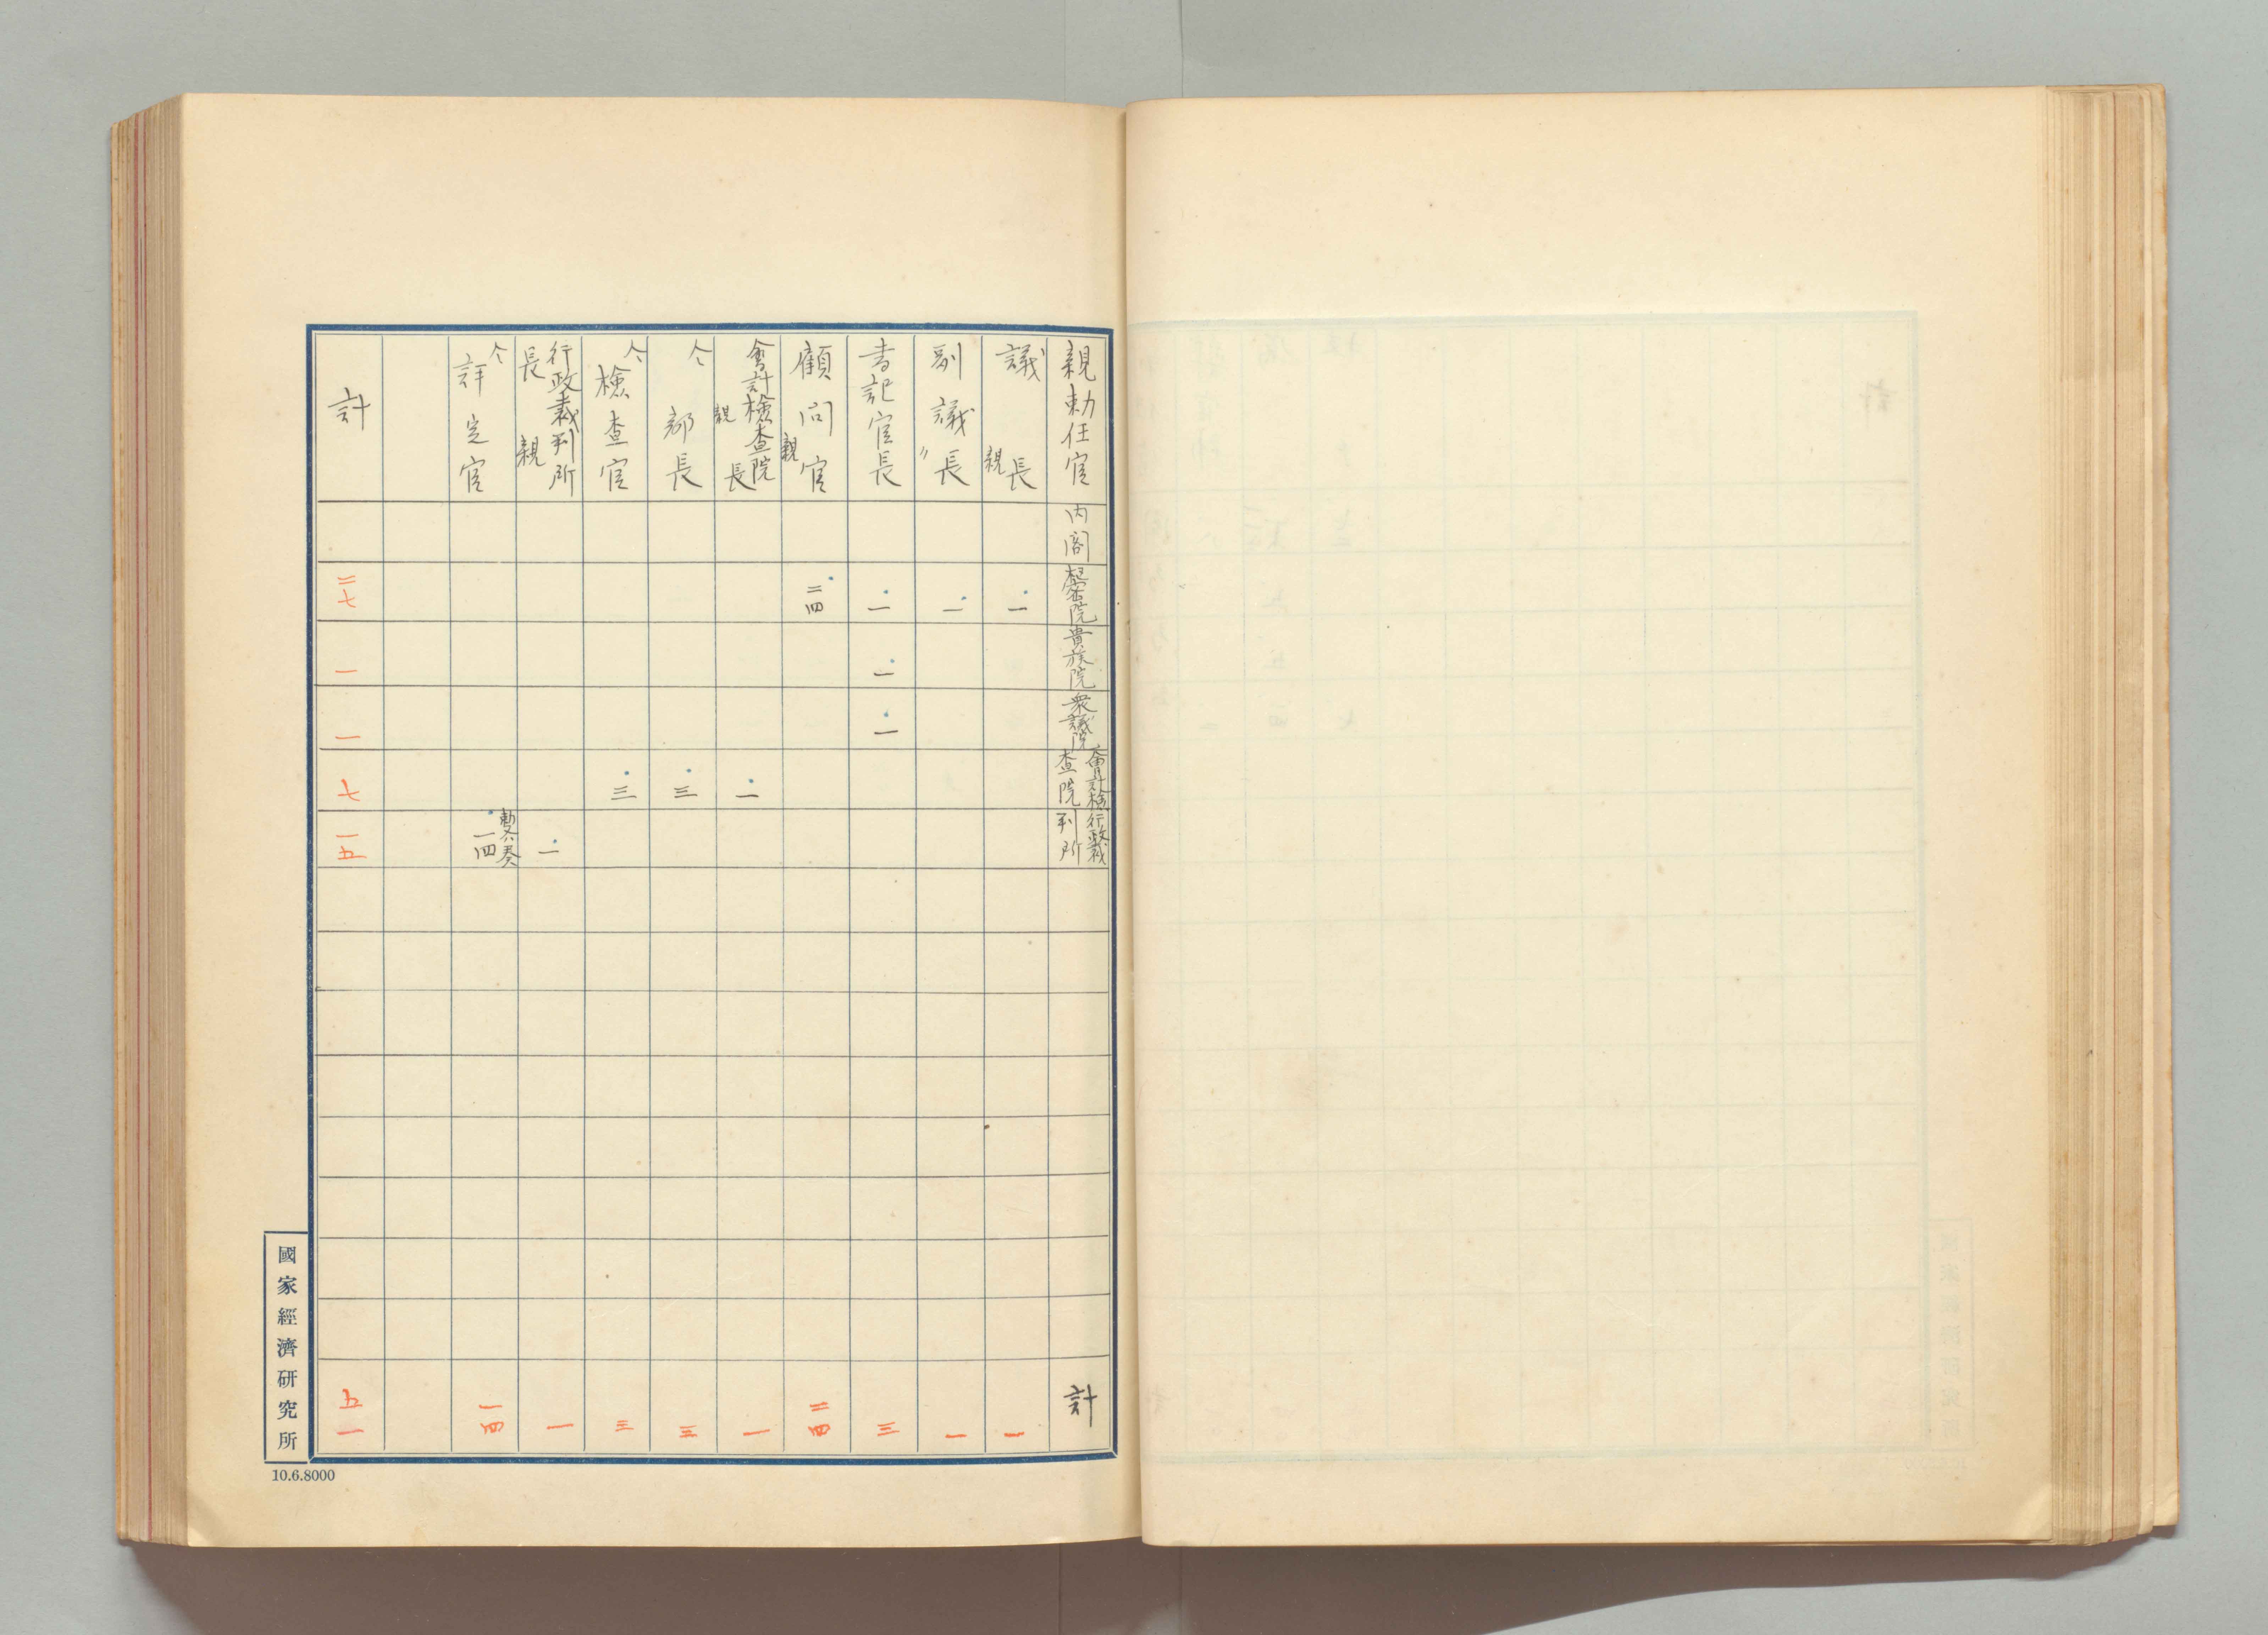 親勅任官 内閣 樞密院 貴族院 衆議院 會計檢査院 行政裁判所 計
議長 親 一 一
副議長 〃 一 一
書記官長 一 一 一 三
顧問官 親 二四 二四
會計檢査院長 親 一 一
仝 部長 三 三
仝 檢査官 三 三
行政裁判所長 親 一 一
仝 評定官 一四 一四
計 二七 一 一 七 一五 五一
國家經濟研究所
10.6.8000